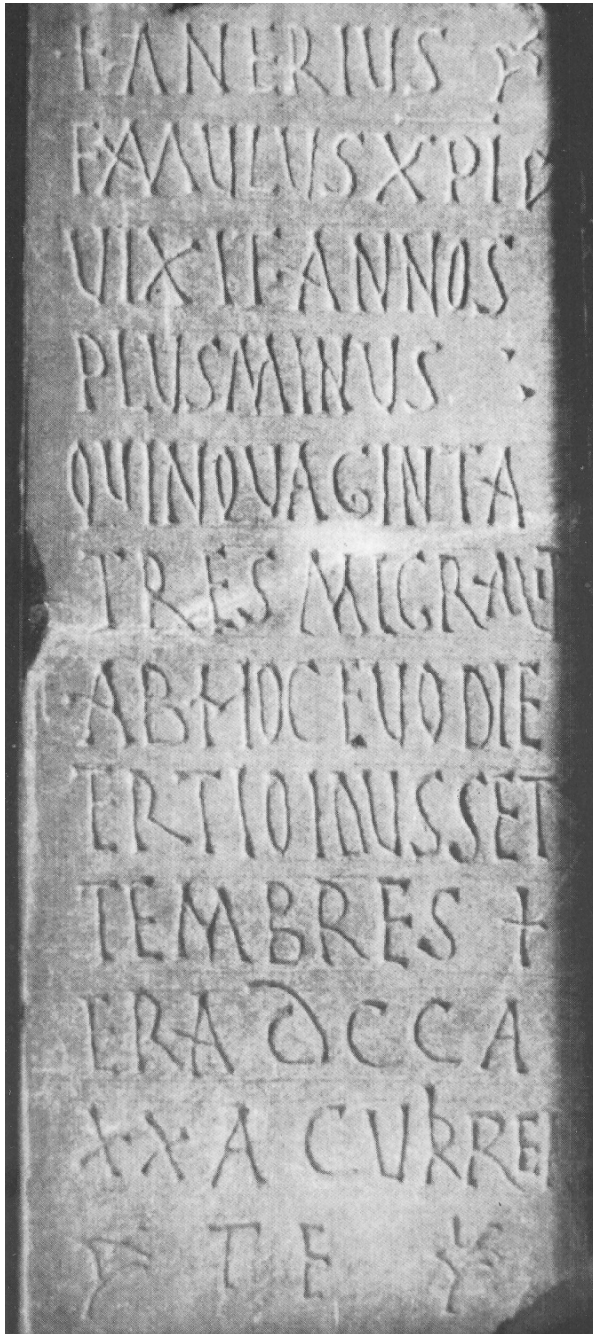 FANERIUS
FAMULUS XPI
UIXIT ANNOS
PLUSMINUS :
QUINQUAGINTA
TRES MIGRAUIT
ABHOC EUO DIE
TERTIO IDUS SET
TEMBRES +
ERA DCCA
XXA CURREN
TE